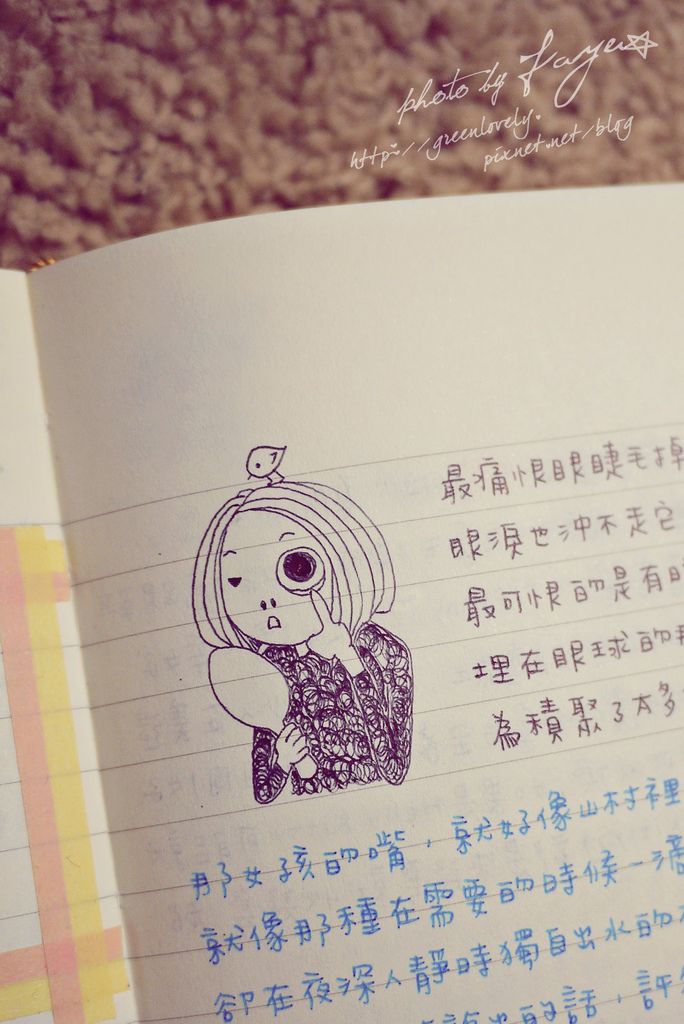 photo by Faye
http://greenlovely.
pixnet.net/blog
最痛恨眼睫毛掉
眼淚也沖不走它
最可恨的是有時
埋在眼球的
為積聚了太多
那女孩的嘴，就好像山村裡
就像那種在需要的時候一滴
卻在夜深人靜時獨自出水的
說出的話，許